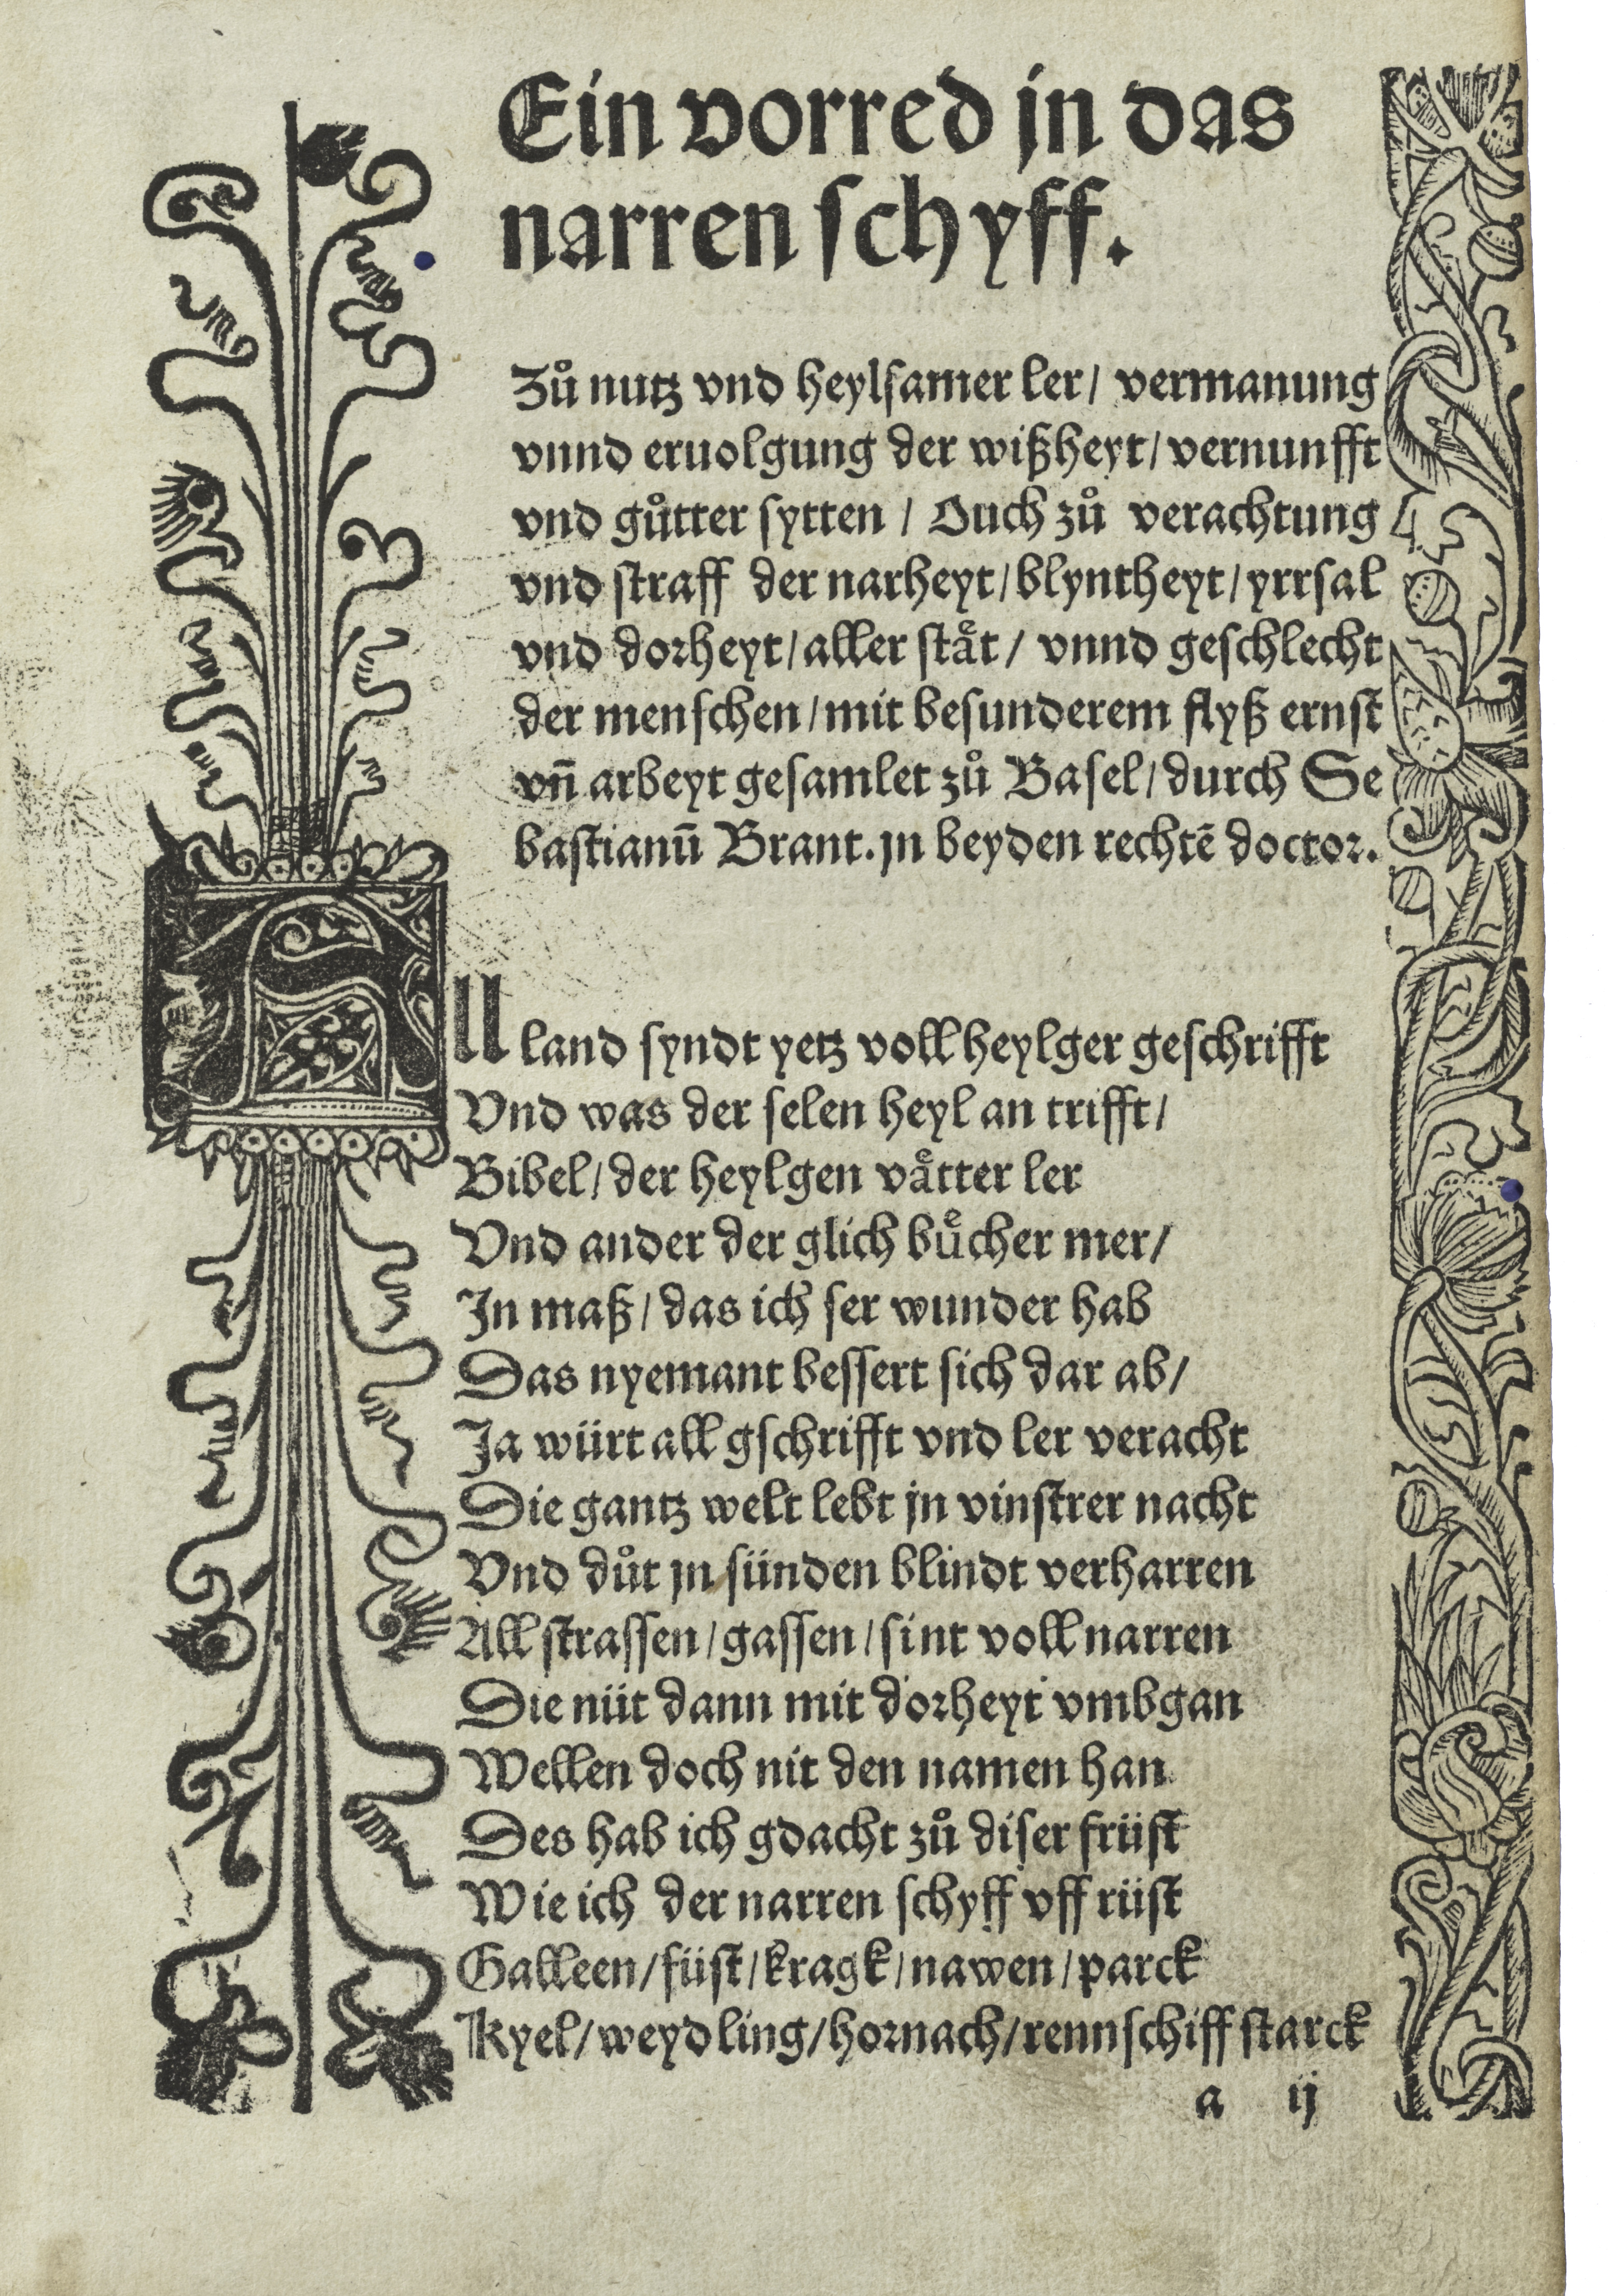 Ein vorred jn das
narren schyff.
Zů nutz vnd heylsamer ler/ vermanung
vnnd eruolgung der wißheyt/ vernunfft
vnd gůtter sytten / Ouch zů verachtung
vnd straff der narheyt/ blyntheyt/ yrrsal
vnd dorheyt/ aller stäͤt/ vnnd geschlecht
der menschen/ mit besunderem flyß ernst
vn̄ arbeyt gesamlet zů Basel/ durch Se
bastianū Brant. jn beyden rechtē doctor.
All land syndt yetz voll heylger geschrifft
Vnd was der selen heyl an trifft/
Bibel/ der heylgen vaͤtter ler
Vnd ander der glich buͤcher mer/
In maß/ das ich ser wunder hab
Das nyemant bessert sich dar ab/
Ja würt all gschrifft vnd ler veracht
Die gantz welt lebt jn vinstrer nacht
Vnd důt jn sünden blindt verharren
All strassen/ gassen/ sint voll narren
Die nüt dann mit dorheyt vmbgan
Wellen doch nit den namen han
Des hab ich gdacht zů diser früst
Wie ich der narren schyff vff rüst
Galleen/ füst/ kragk/ nawen/ parck
Kyel/ weydling/ hornach/ rennschiff starck
a ij